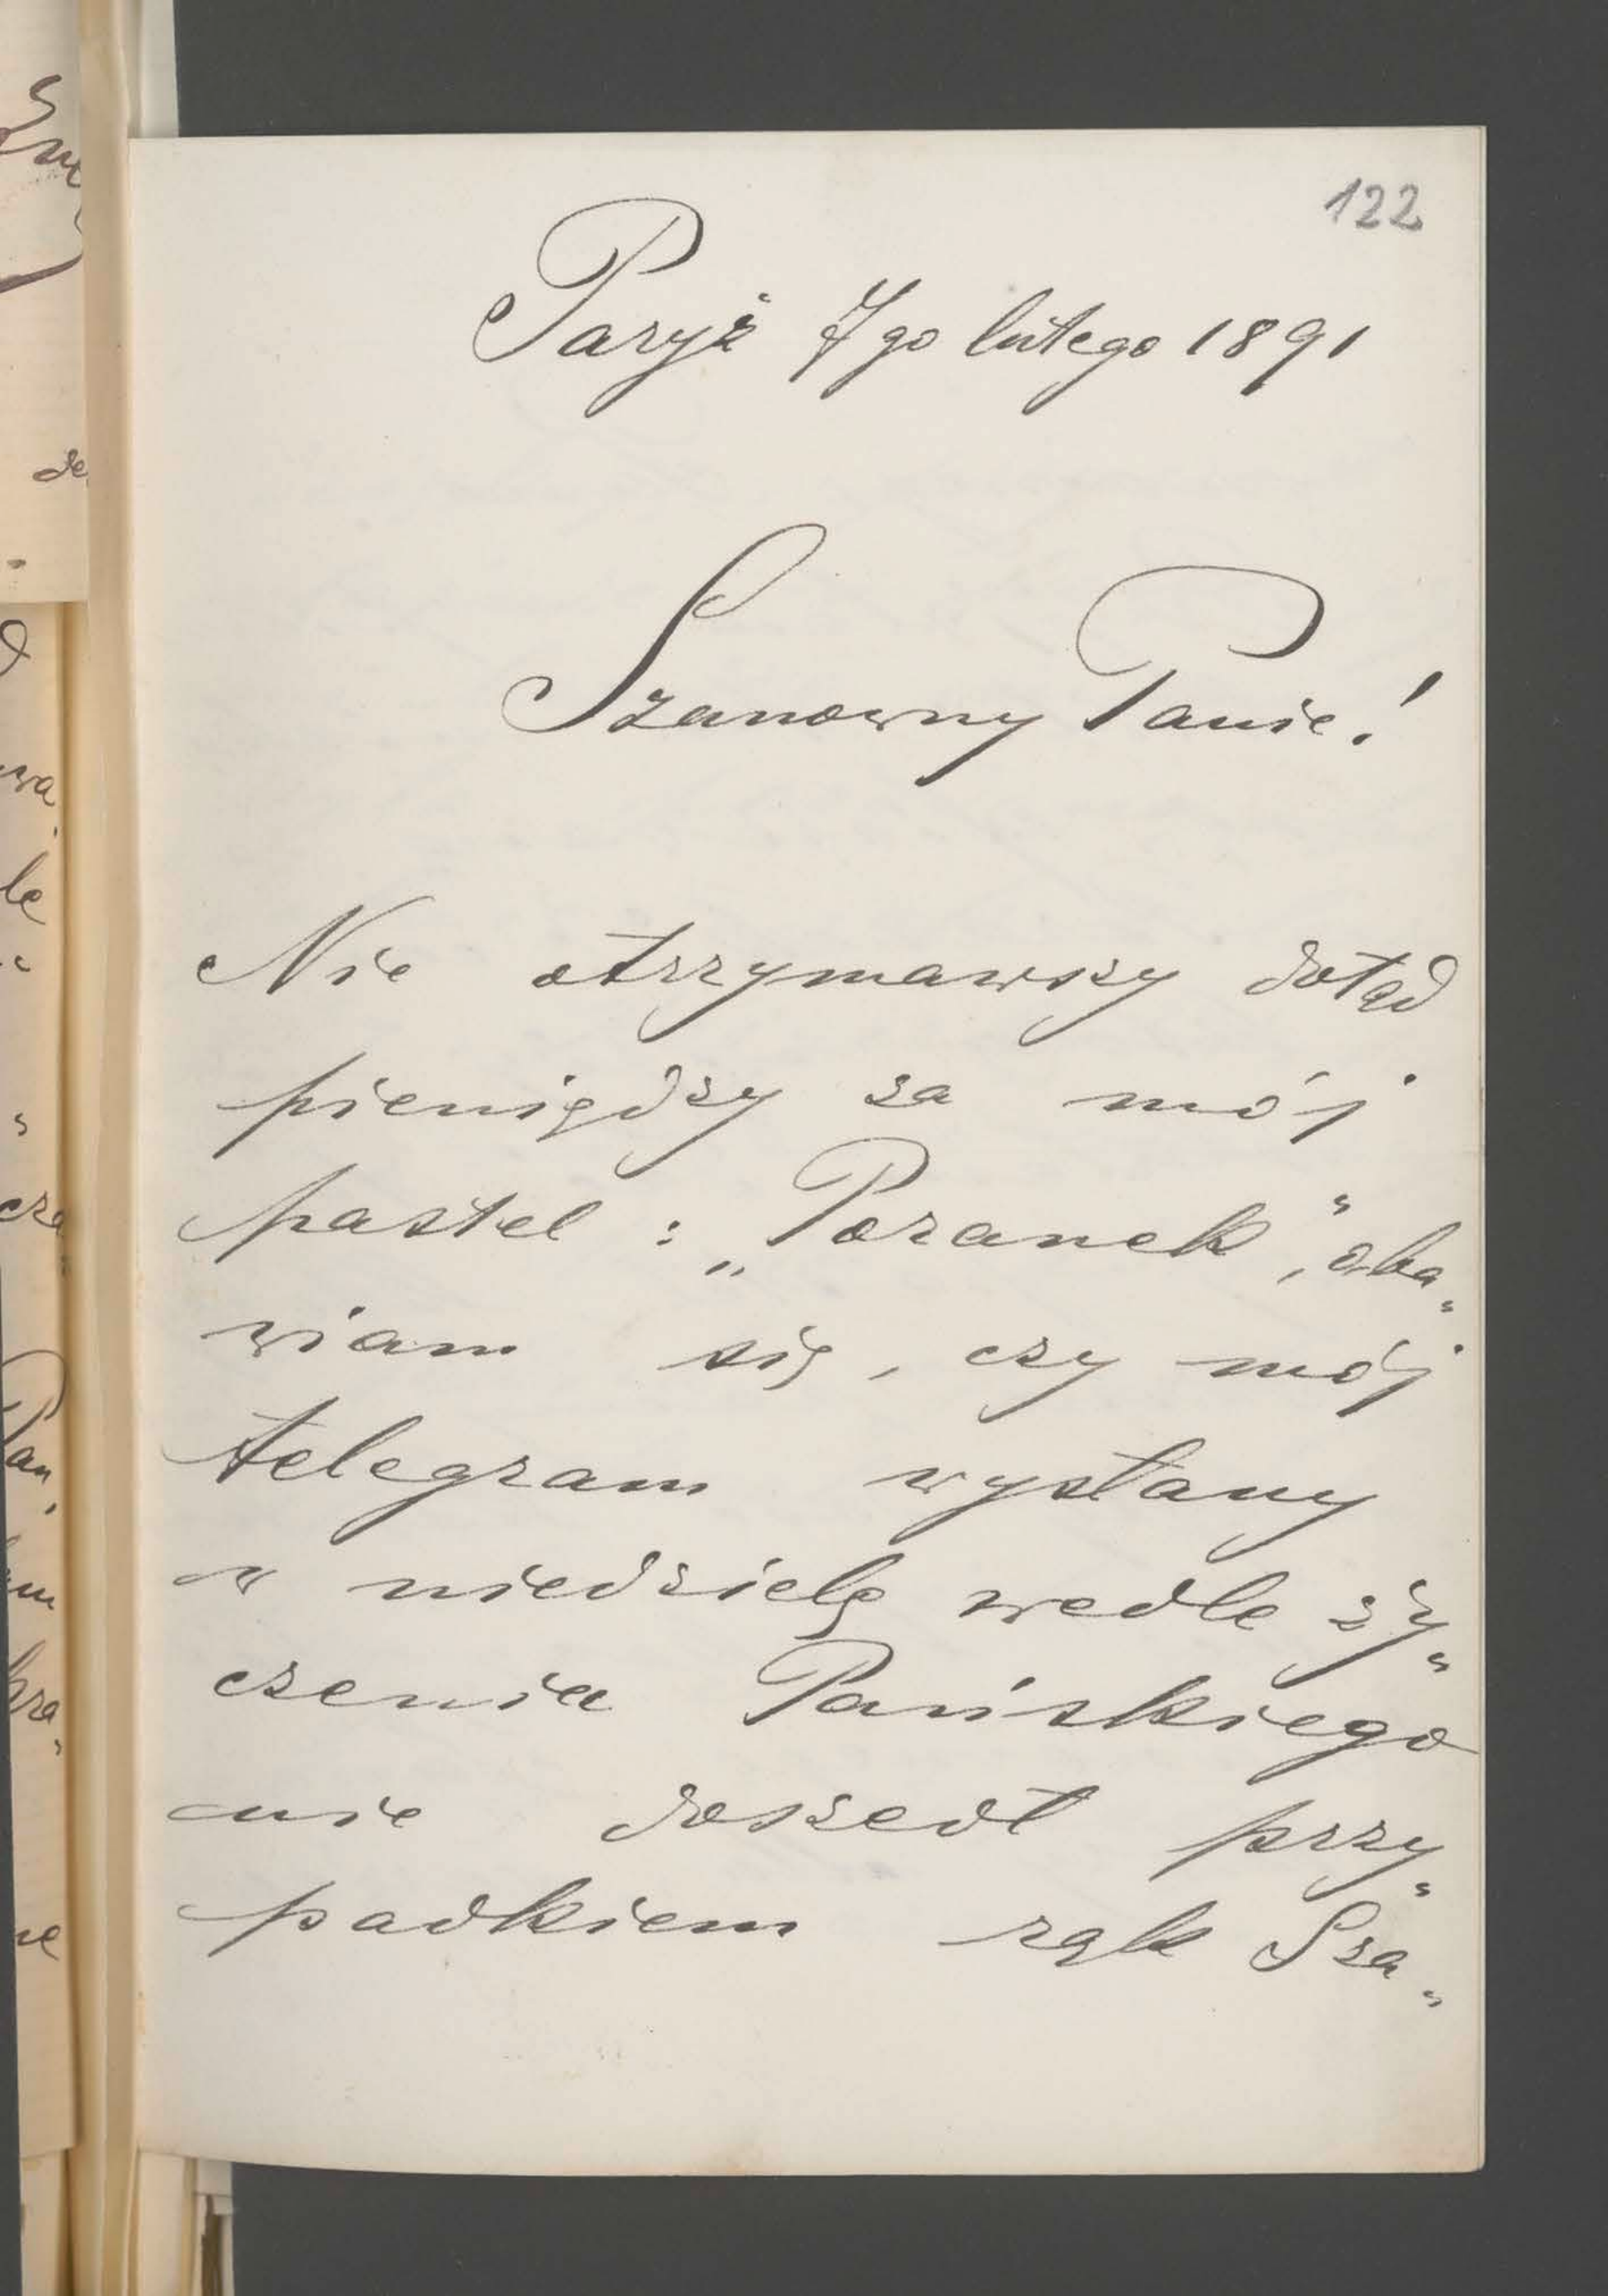 122
Paryż 7go lutego 1891
Szanowny Panie!
Nie otrzymawszy dotąd
pieniędzy za mój
pastel : „Poranek“, oba„
wiam się, czy mój
telegram wysłany
w niedzielę wedle ży„
czenia Pańskiego
nie doszedł przy„
padkiem rąk Sza„